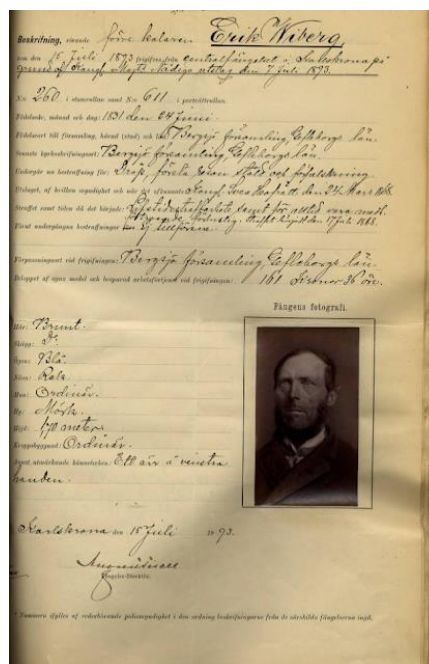 Beskrifning, rörande förre kolaren Erik Wiberg,
som den 15 Juli 1893 frigifves från centralfängelset i Karlskrona på
grund af Kongl. Majts nådiga utslag den 7 Juli 1893.
N:o 260 i stamrullan samt N:o 611 i porträttrullan.
Födelseår, månad och dag: 1831 den 24 Juni.
Födelseort till församling, härad (stad) och län: Bergsjö församling, Gefleborgs län.
Senaste kyrkskrifningsort: Bergsjö församling, Gefleborgs län.
Undergår nu bestraffning för: Dråp, första resan stöld och förfalskning.
Utslaget, af hvilken myndighet och när det afkunnats: Kongl. Svea Hofrätt den 24 Mars
Straffet samt tiden då det började: Lifstidsstraffarbete samt för alltid vara med.
förtroende förlustig. Straffet
Förut undergångna bestraffningar: Ej
Förpassningsort vid frigifningen: Bergsjö församling, Gefleborgs län.
Beloppet af egna medel och besparad arbetsförtjenst vid frigifningen: 161 Kronor 36 öre.
Fångens fotografi.
Hår: Brunt.
Skägg: D:o
Ögon: Blå.
Näsa: Rak.
Mun: Ordinär.
Hy: Mörk.
Höjd: 1,70 meter.
Kroppsbyggnad: Ordinär.
Annat utmärkande kännetecken: Ett ärr å venstra
handen.
Karlskrona den 15 Juli 1893.
Fängelse-Direktör.
* Numrera ifylles af vederbörande polismyndighet i den ordning beskrifningarne från de särskilda fängelserna ingå.